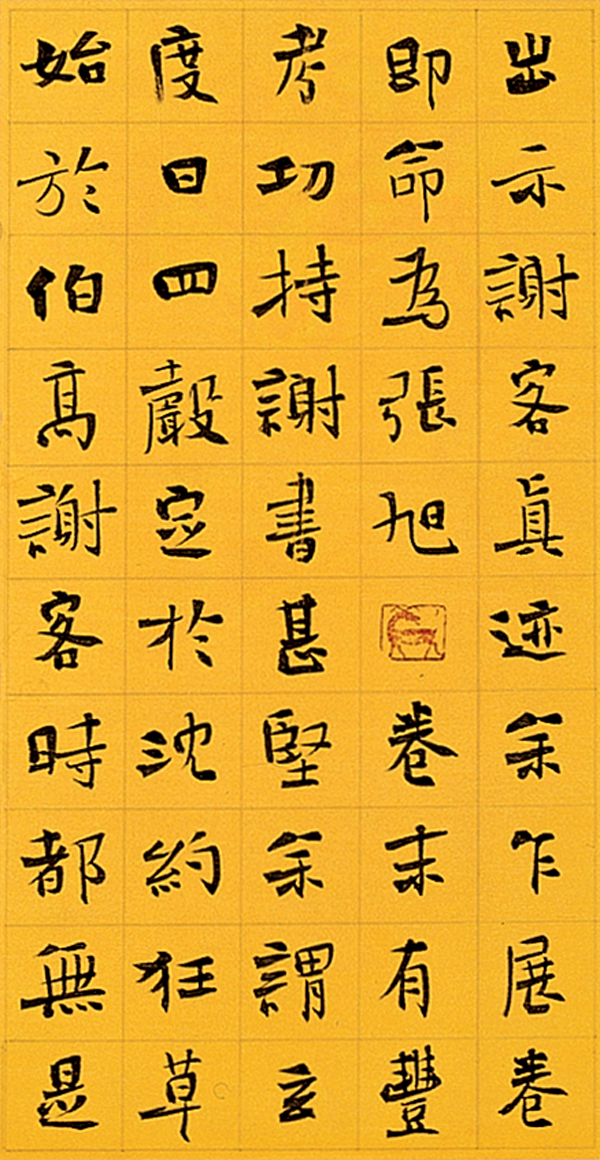 出示謝客眞迹余乍展卷
即命為張旭卷末有豐
考功持謝書甚堅余謂玄
度曰四聲定於沈約狂草
始於伯高謝客時都無是